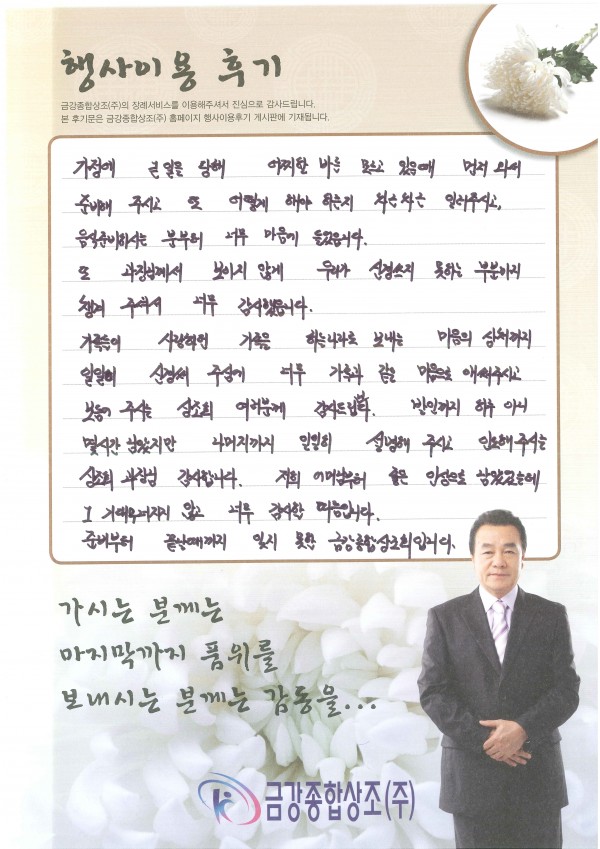 행사이용 후기
금강종합상조(주)의 장례서비스를 이용해주셔서 진심으로 감사드립니다.
본 후기문은 금강종합상조(주) 홈페이지 행사이용후기 게시판에 기재됩니다.
가정에 큰일을 당해 어찌한 바를 모르고 있을때 먼저 와서
준비해 주시고 또 어떻게 해야 하는지 차근차근 일러주시고,
음식준비하시는 분부터 너무 마음에 들었습니다.
또 과장님께서 보이지 않게 우리가 신경쓰지 못하는 부분까지
챙겨 주셔서 너무 감사했습니다.
가족들이 사랑하던 가족을 하늘나라로 보내는 마음의 상처까지
일일이 신경써 주심에 너무 가족과 같은 마음으로 애써주시고
보듬어 주시는 상조회 여러분께 감사드립니다. 발인까지 하루 아니
몇시간 남았지만 나머지까지 일일이 설명해 주시고 인도해주시는
상조회 과장님 감사합니다. 저희 어머님부터 좋은 인상으로 남았었는데
그 기대 않고 너무 감사한 마음입니다.
준비부터 끝날때까지 잊지 못할 금강종합상조회입니다.
가시는 분께는
마지막까지 품위를
보내시는 분께는 감동을...
금강종합상조(주)